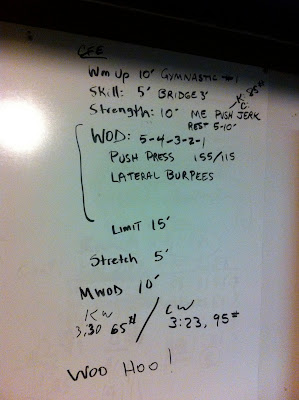 CFE
Wm Up 10' GYMNASTIC #1
Skill: 5' BRIDGE 3'
Strength: 10' ME PUSH JERK
K: 85#
C:
REST 5-10'
WOD: 5-4-3-2-1
PUSH PRESS 155/115
LATERAL BURPEES
LIMIT 15'
Stretch 5'
MWOD 10'
KW / CW
3:30 65# 3:23, 95#
WOO HOO!